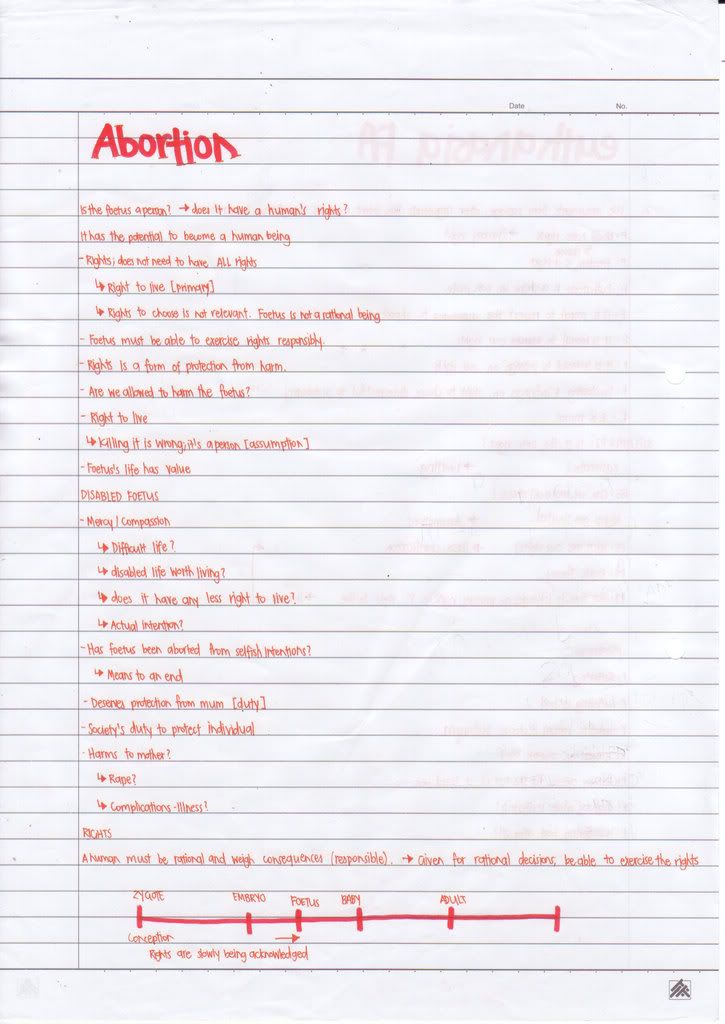 Date No.
Abortion
Is the foetus a person? → does it have a human's rights?
It has the potential to become a human being
- Rights; does not need to have ALL rights
↳ Right to live [primary]
↳ Rights to choose is not relevant. Foetus is not a rational being
- Foetus must be able to exercise rights responsibly.
- Rights is a form of protection from harm.
- Are we allowed to harm the foetus?
- Right to live
↳ Killing it is wrong; it's a person [assumption]
- Foetus's life has value
DISABLED FOETUS
- Mercy / Compassion
↳ Difficult life?
↳ disabled life worth living?
↳ does it have any less right to live?
↳ Actual intention?
- Has foetus been aborted from selfish intentions?
↳ Means to an end
- Deserves protection from mum [duty]
- Society's duty to protect individual
- Harms to mother?
↳ Rape?
↳ Complications - Illness?
RIGHTS
A human must be rational and weigh consequences (responsible). → Given for rational decisions, be able to exercise the rights
ZYGOTE EMBRYO FOETUS BABY ADULT
Conception →
Rights are slowly being acknowledged